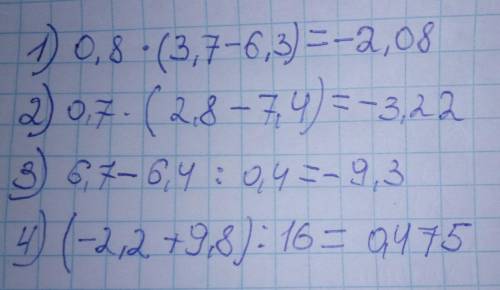 1) 0,8 · (3,7-6,3)=-2,08
2) 0,7 · (2,8-7,4)=-3,22
3) 6,7-6,4 : 0,4=-9,3
4) (-2,2+9,8) : 16= 0,475